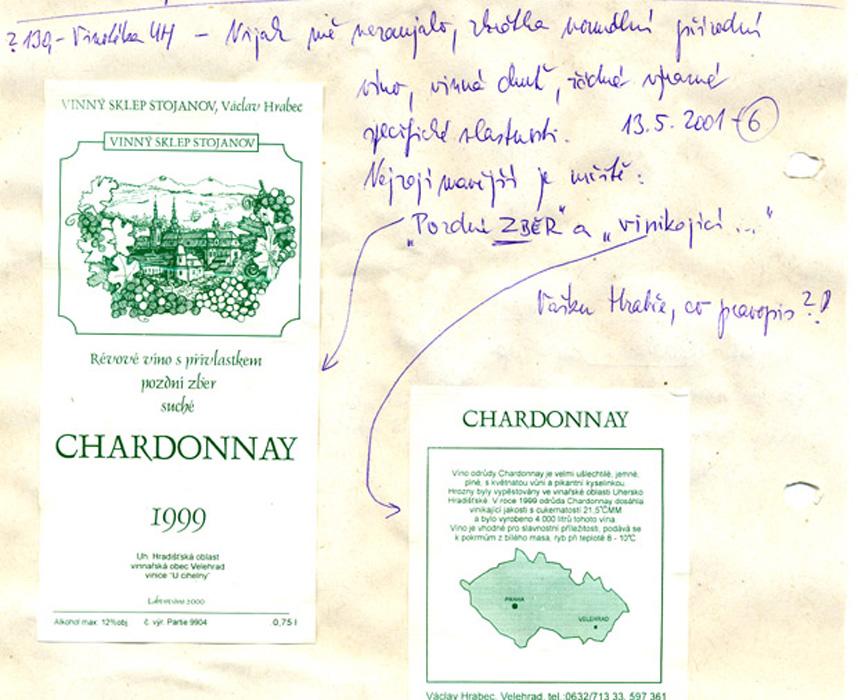 ? 139,- Vinotéka UH - Nijak mě nezaujalo, zkrátka normální přírodní
víno, vinná chuť, žádné výrazné
specifické vlastnosti. 13.5.2001 - 6
Nejzajímavější je určitě:
"Pozdní ZBĚR" a "vinikojící ..."
Vašku Hrabče, co pravopis?!
VINNÝ SKLEP STOJANOV, Václav Hrabec
VINNÝ SKLEP STOJANOV
Révové víno s přívlastkem
pozdní zber
suché
CHARDONNAY
1999
Uh. Hradišťská oblast
vinnařská obec Velehrad
vinice "U cihelny"
2000
Alkohol max. 12%obj č. výr. Partie 9904 0,75 l
CHARDONNAY
Víno odrůdy Chardonnay je velmi ušlechtilé, jemné,
plné, s květnatou vůní a pikantní kyselinkou.
Hrozny byly vypěstovány ve vinařské oblasti Uhersko
Hradišťské. V roce 1999 odrůda Chardonnay dosáhla
vinikající jakosti s cukernatostí 21,5°ČMM
a bylo vyrobeno 4 000 litrů tohoto vína.
Víno je vhodné pro slavnostní příležitosti, podává se
k pokrmům z bílého masa, ryb při teplotě 8 - 10°C
PRAHA
VELEHRAD
Václav Hrabec, Velehrad, tel.:0632/713 33, 597 361